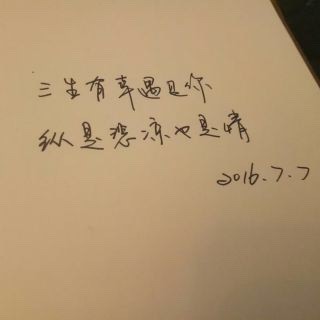 三生有幸遇见你
纵是悲凉也是情
2016.7.7